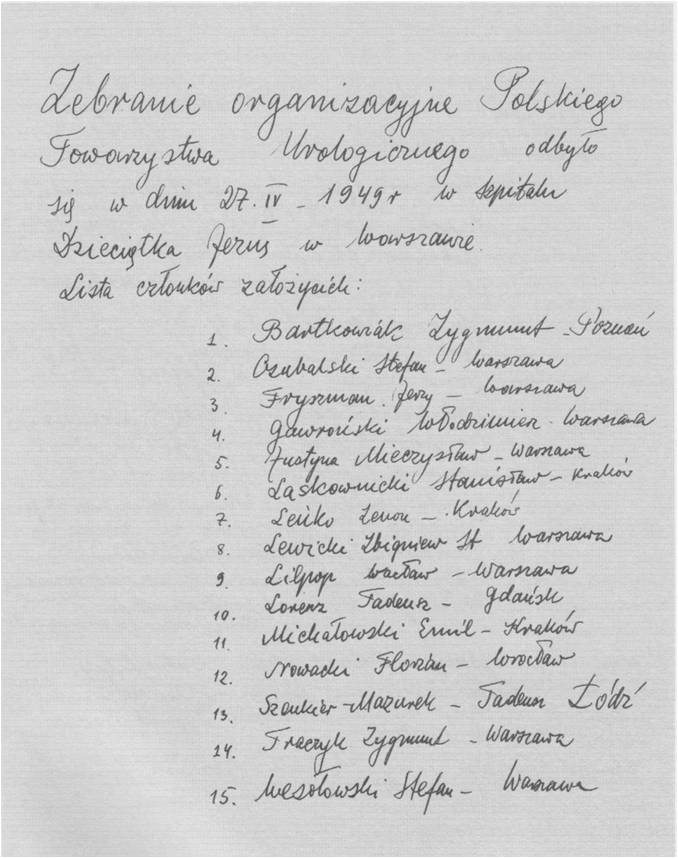 Zebranie organizacyjne Polskiego
Towarzystwa Urologicznego odbyło
się w dniu 27.IV - 1949 r w szpitalu
Dzieciątka Jezus w Warszawie.
Lista członków założycieli:
1. Bartkowiak Zygmunt - Poznań
2. Czubalski Stefan - Warszawa
3. Fryszman Jerzy - Warszawa
4. Gawroński Włodzimierz - Warszawa
5. Justyna Mieczysław - Warszawa
6. Laskownicki Stanisław - Kraków
7. Leńko Zenon - Kraków
8. Lewicki Zbigniew St Warszawa
9. Lilpop Wacław - Warszawa
10. Lorenz Tadeusz - Gdańsk
11. Michałowski Emil - Kraków
12. Nowacki Florian - Wrocław
13. Szenkier-Mazurek - Tadeusz Łódź
14. Traczyk Zygmunt - Warszawa
15. Wesołowski Stefan - Warszawa